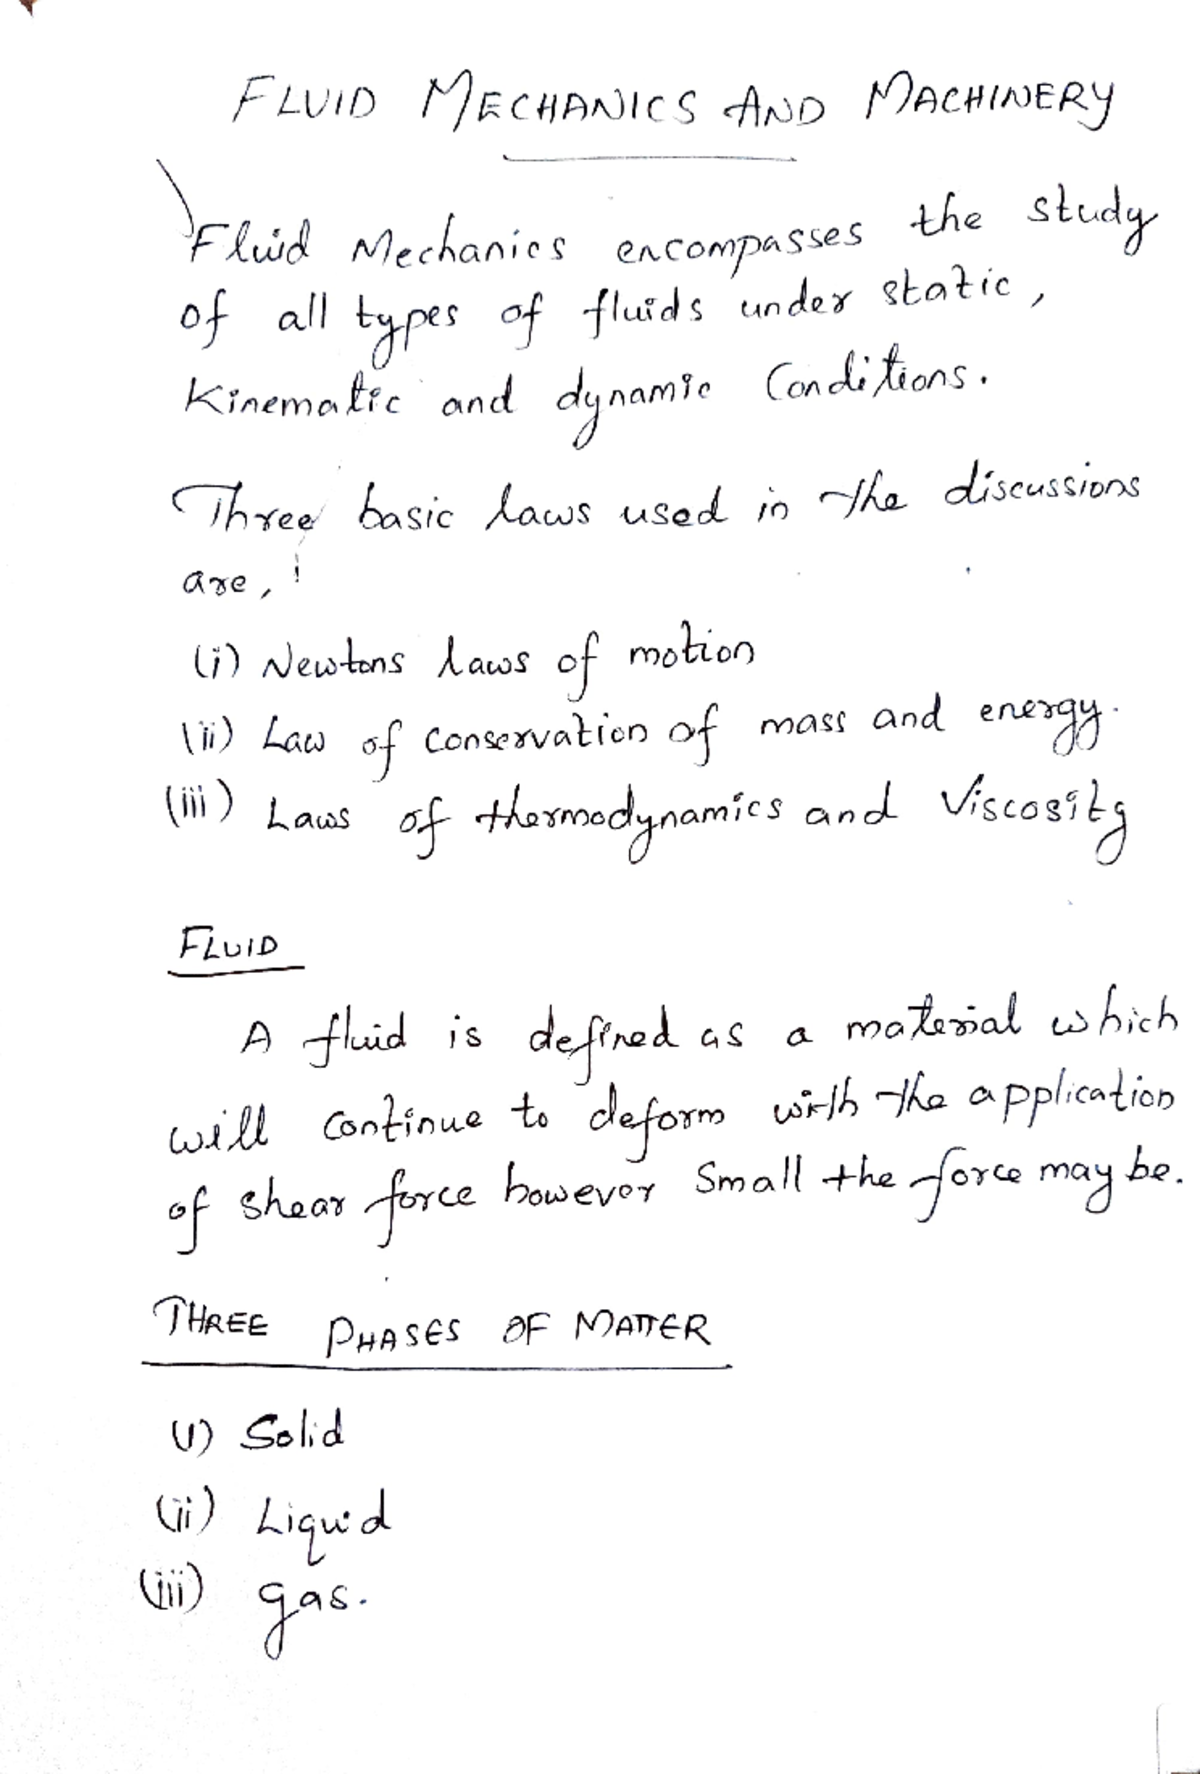 FLUID MECHANICS AND MACHINERY
Fluid Mechanics encompasses the study
of all types of fluids under static,
Kinematic and dynamic Conditions.
Three basic laws used in the discussions
are, !
(i) Newtons laws of motion
(ii) Law of conservation of mass and energy.
(iii) Laws of thermodynamics and Viscosity
FLUID
A fluid is defined as a material which
will continue to deform with the application
of shear force however Small the force may be.
THREE PHASES OF MATTER
(i) Solid
(ii) Liquid
(iii) gas.